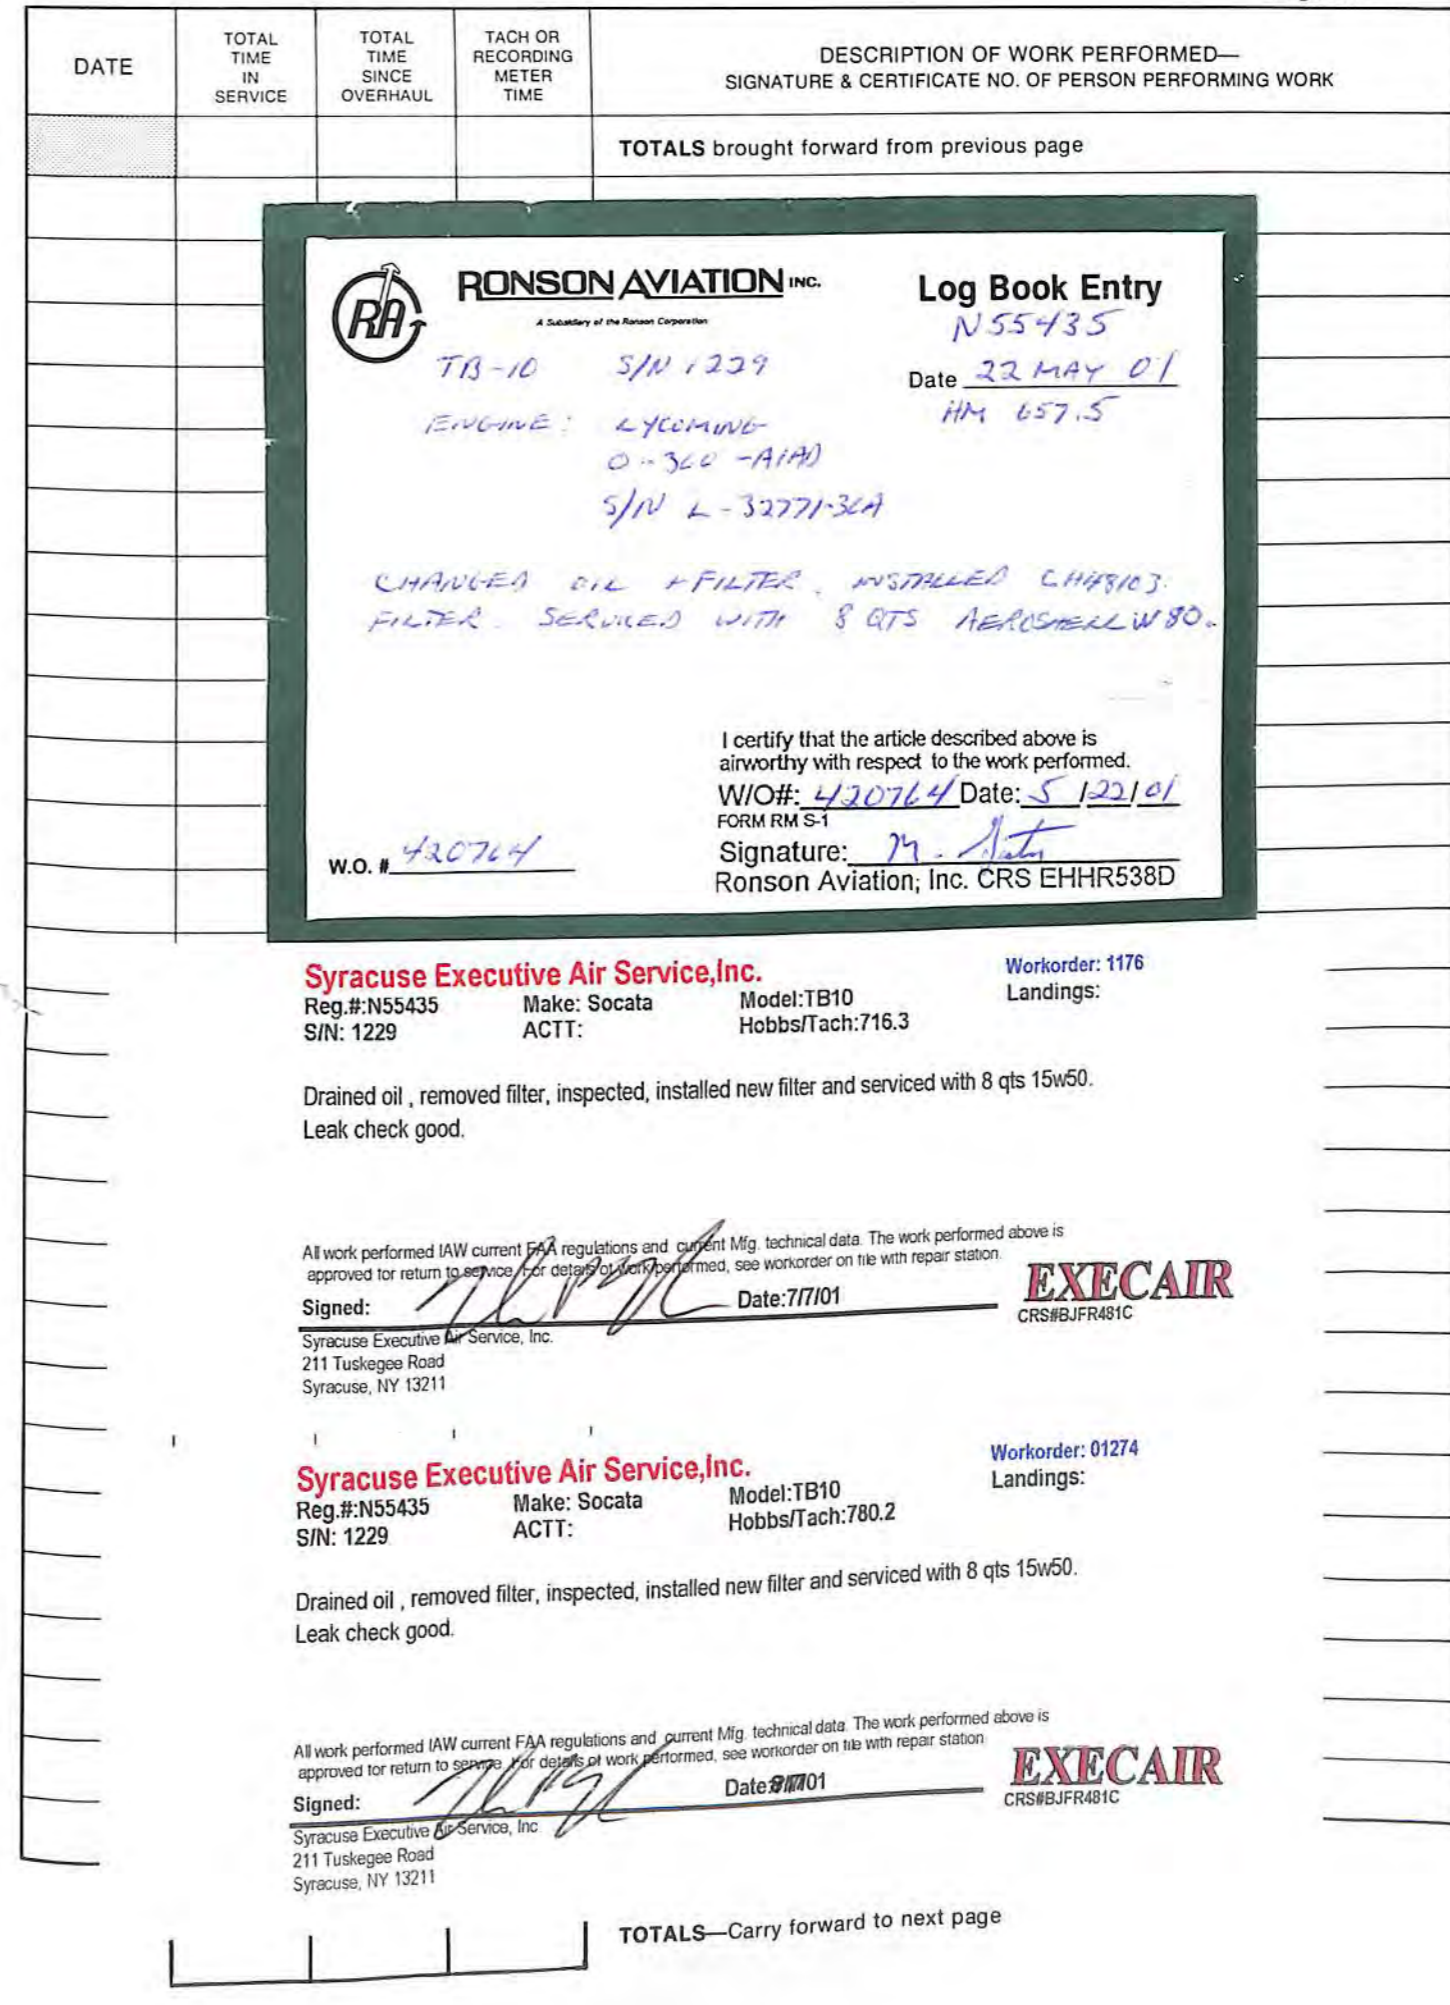 DATE
TOTAL
TIME
IN
SERVICE
TOTAL
TIME
SINCE
OVERHAUL
TACH OR
RECORDING
METER
TIME
DESCRIPTION OF WORK PERFORMED—
SIGNATURE & CERTIFICATE NO. OF PERSON PERFORMING WORK
TOTALS brought forward from previous page
RA
RONSON AVIATION INC.
A Subsidiary of the Ronson Corporation
Log Book Entry
N55435
TB-10 S/N 1229
Date 22 MAY 01
HM 657.5
ENGINE: LYCOMING
O-360-A1AD
S/N L-32771-36A
CHANGED OIL + FILTER. INSTALLED CH48103
FILTER. SERVICED WITH 8 QTS AEROSHELL W80.
I certify that the article described above is
airworthy with respect to the work performed.
W/O#: 420764 Date: 5/22/01
FORM RM S-1
Signature:
W.O. # 420764
Ronson Aviation, Inc. CRS EHHR538D
Syracuse Executive Air Service,Inc.
Workorder: 1176
Reg.#:N55435 Make: Socata Model:TB10 Landings:
S/N: 1229 ACTT: Hobbs/Tach:716.3
Drained oil , removed filter, inspected, installed new filter and serviced with 8 qts 15w50.
Leak check good.
All work performed IAW current FAA regulations and current Mfg. technical data. The work performed above is
approved for return to service. For details of work performed, see workorder on file with repair station.
Signed: Date:7/7/01
EXECAIR
CRS#BJFR481C
Syracuse Executive Air Service, Inc.
211 Tuskegee Road
Syracuse, NY 13211
Syracuse Executive Air Service,Inc.
Workorder: 01274
Reg.#:N55435 Make: Socata Model:TB10 Landings:
S/N: 1229 ACTT: Hobbs/Tach:780.2
Drained oil , removed filter, inspected, installed new filter and serviced with 8 qts 15w50.
Leak check good.
All work performed IAW current FAA regulations and current Mfg. technical data. The work performed above is
approved for return to service. For details of work performed, see workorder on file with repair station
Signed: Date:
EXECAIR
CRS#BJFR481C
Syracuse Executive Air Service, Inc
211 Tuskegee Road
Syracuse, NY 13211
TOTALS—Carry forward to next page